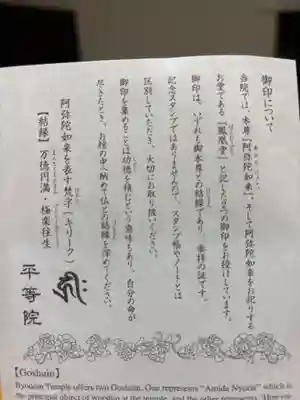 御印について
当院では、本尊『阿弥陀如来』、そして阿弥陀如来をお祀りする
お堂である『鳳凰堂』と記した2つの御印をお授けしています。
御印は、いずれも御本尊との結縁であり、参拝の証です。
記念スタンプではありませんので、スタンプ帳やノートとは
区別していただき、大切にお取り扱いください。
御印を集めることは功徳を積むという意味もあり、自分の命が
尽きたとき、お棺の中へ納めて仏との結縁を深めてください。
阿弥陀如来を表す梵字(キリーク)
【結縁】万徳円満・極楽往生
平等院
【Goshuin】
Byodoin Temple offers two Goshuin. One represents "Amida Nyorai" which is
the principal object of worship at the temple, and the other represents